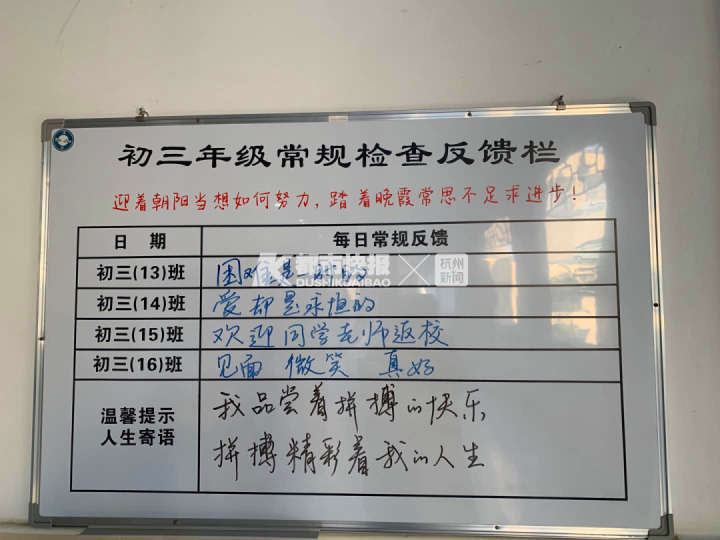 初三年级常规检查反馈栏
迎着朝阳当想如何努力，踏着晚霞常思不足求进步！
日 期 每日常规反馈
初三(13)班 困难是一时的
初三(14)班 爱却是永恒的
初三(15)班 欢迎同学老师返校
初三(16)班 见面 微笑 真好
温馨提示
人生寄语
我品尝着拼搏的快乐
拼搏精彩着我的人生
都市快报
DUSHIKUAIBAO
杭州
新闻